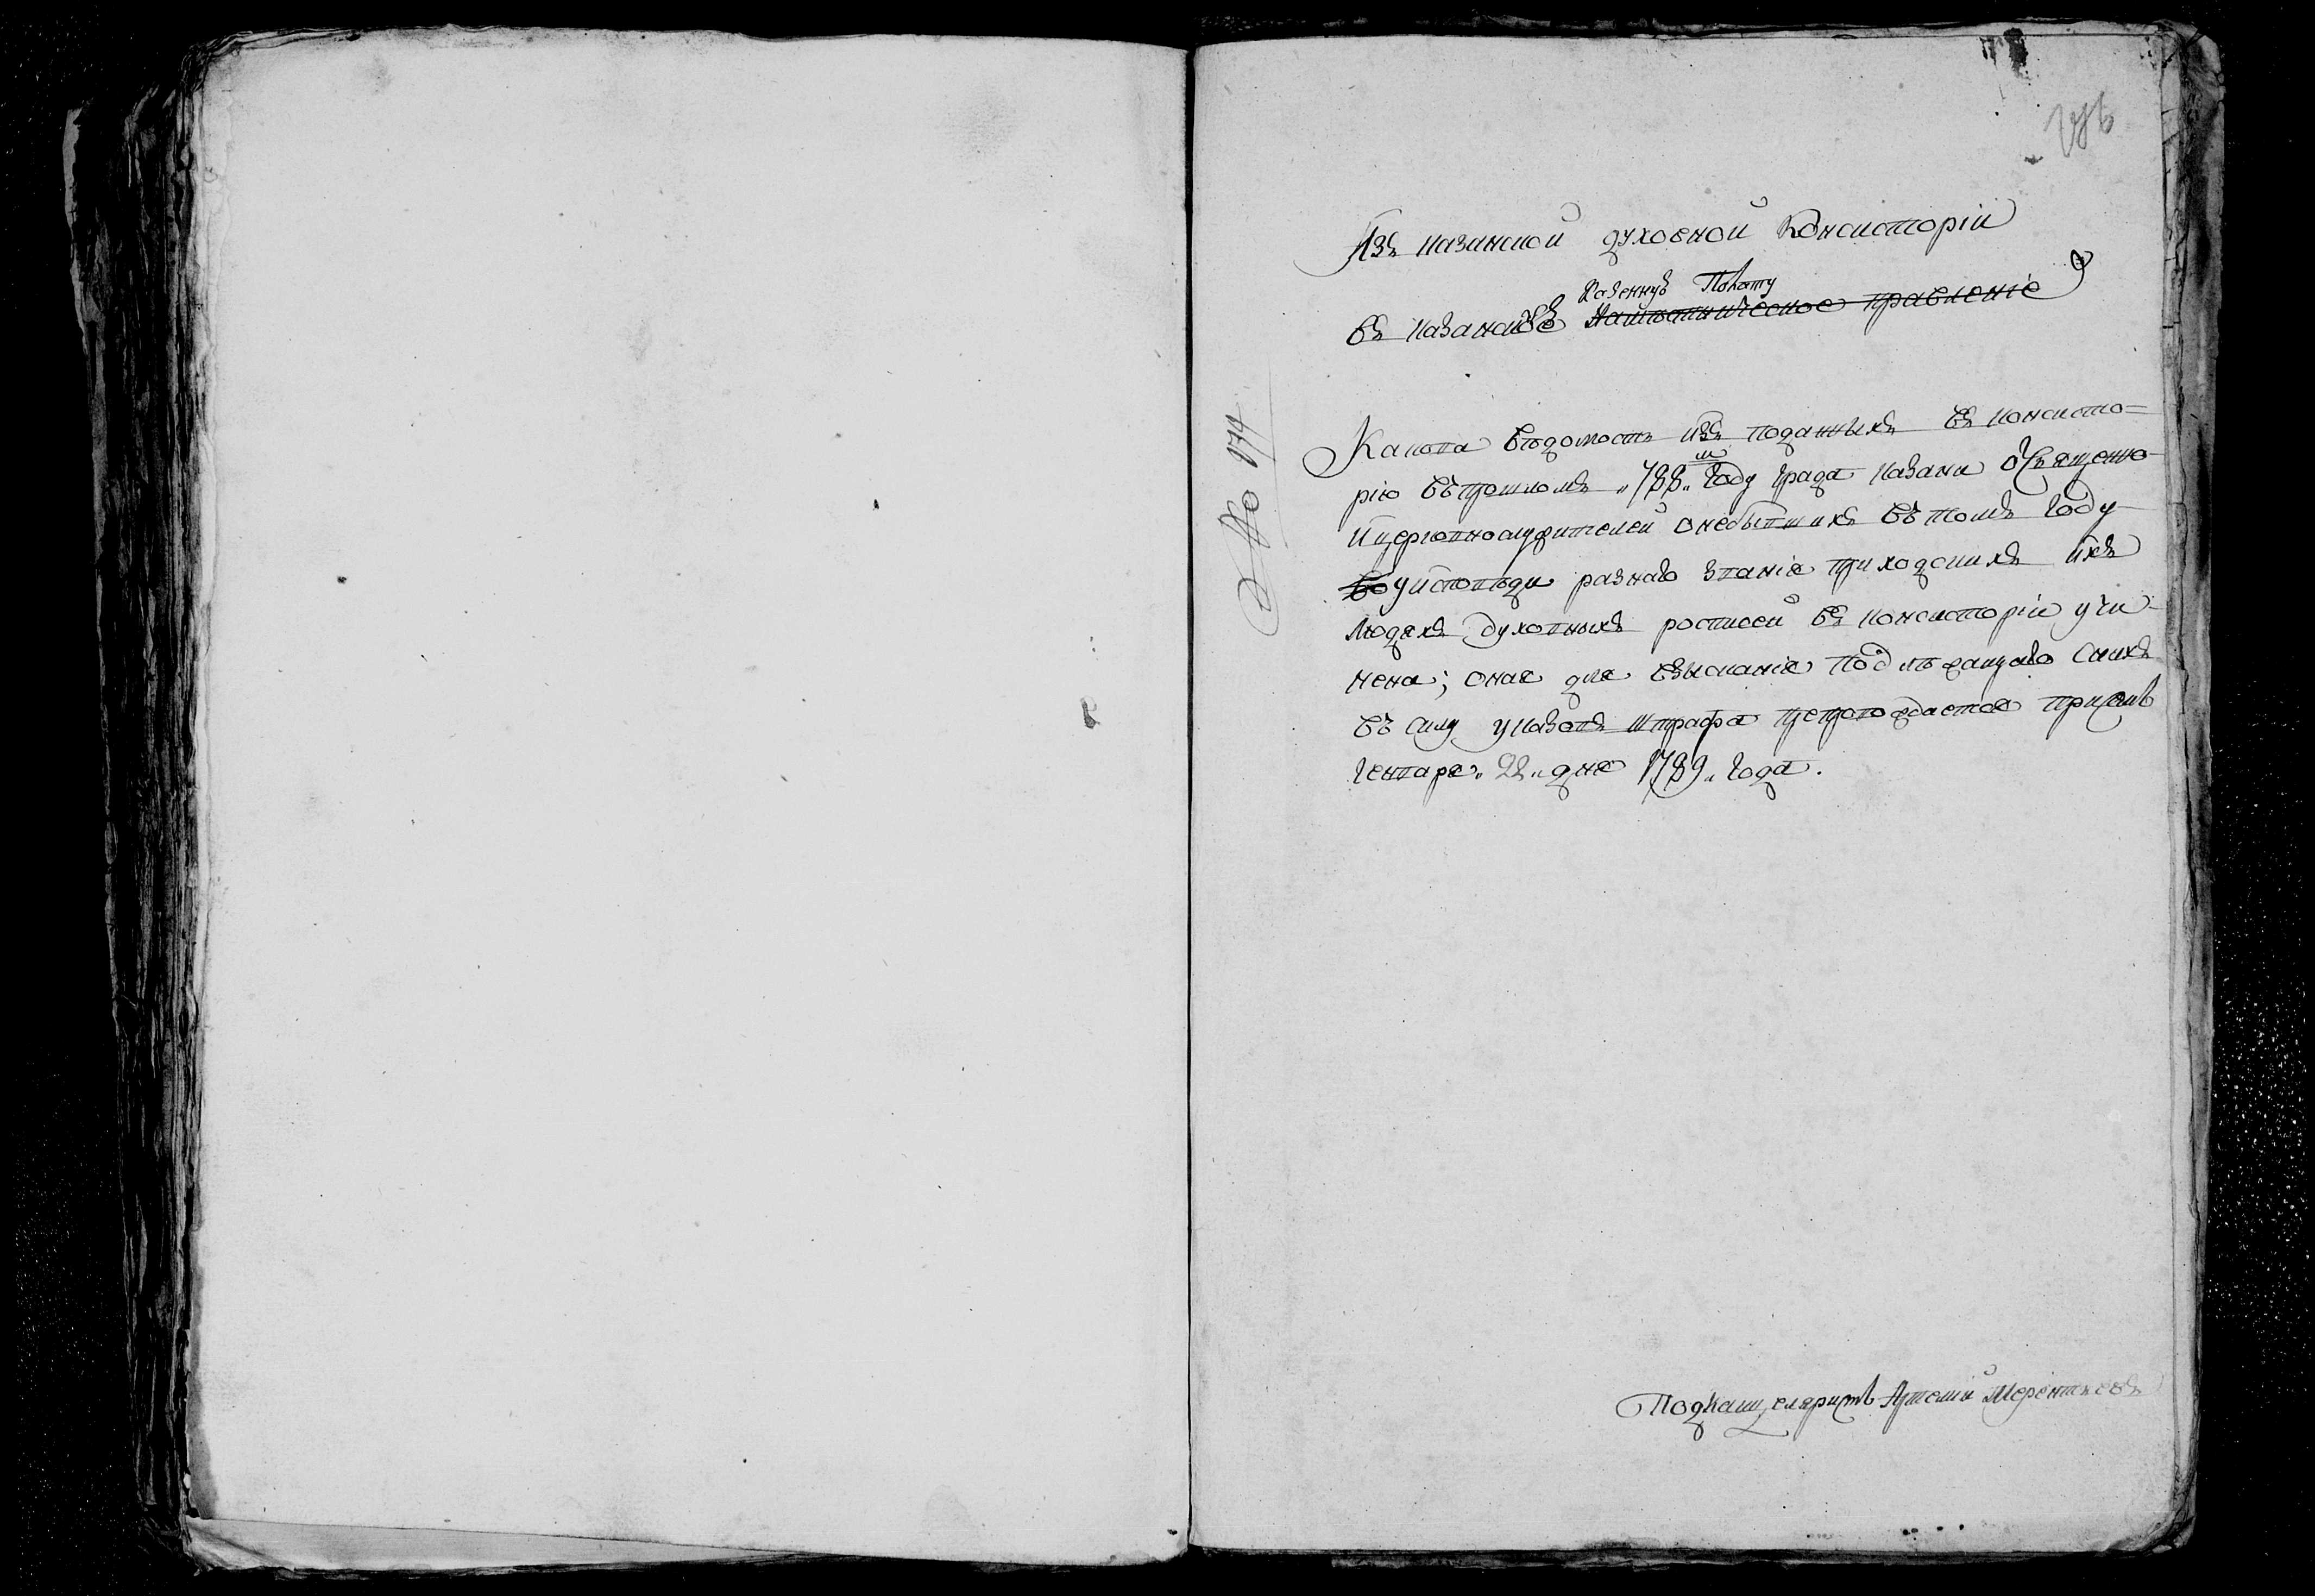 Изъ казанской духовной Консисторіи
Казенную Полату
въ казанскую Намѣстническое правленіе
№ 174
Какова вѣдомость изъ поданныхъ въ консисто=
рію въ прошломъ „788„ м году града казани ѿ священно
и церковнослужителей о небывшихъ въ томъ году
во у исповѣди разнаго званія приходскихъ ихъ
людяхъ духовныхъ росписей въ консисторіи учи-
нена; оная для взысканія подлежащаго с нихъ
въ силу указовъ штрафа препровождается при семъ
генваря „22„ дня 1789„ года.
Подканцеляристъ Артемий